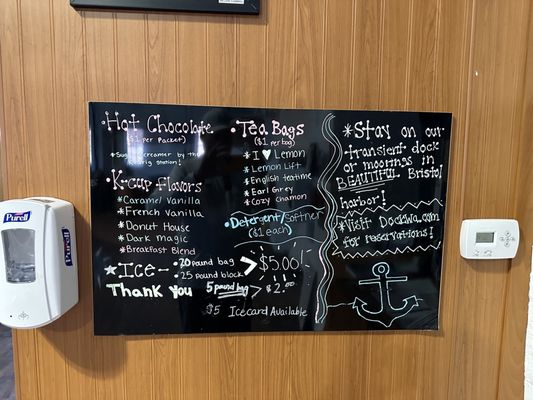 PURELL
Hot Chocolate
($1 per packet)
*Sugar + creamer by the
station!
K-cup Flavors
*Caramel Vanilla
*French Vanilla
*Donut House
*Dark magic
*Breakfast Blend
*Ice-
•20 pound bag
•25 pound block
>$5.00!
5 pound bag > $2.00
Thank You
$5 Icecard Available
•Tea Bags
($1 per bag)
*I ♥ Lemon
*Lemon Lift
*English teatime
*Earl Grey
*Cozy Chamom
•Detergent/Softner
($1 each)
*Stay on our
transient dock
or moorings in
BEAUTIFUL Bristol
harbor!
*Visit Dockwa.com
for reservations!